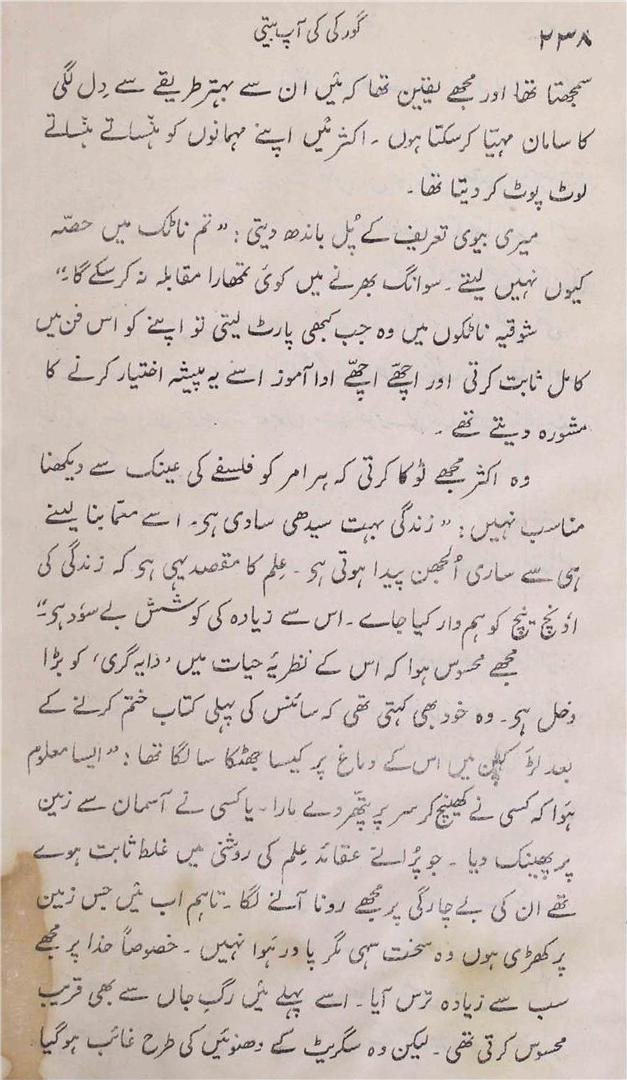 ۲۳۸
گورکی کی آپ بیتی
سمجھتا تھا اور مجھے یقین تھا کہ میں ان سے بہتر طریقے سے دل لگی
کا سامان مہیّا کرسکتا ہوں ۔ اکثر میں اپنے مہمانوں کو ہنساتے ہنساتے
لوٹ پوٹ کر دیتا تھا ۔
میری بیوی تعریف کے پُل باندھ دیتی : ” تم ناٹک میں حصّہ
کیوں نہیں لیتے ۔ سوانگ بھرنے میں کوئی تمھارا مقابلہ نہ کرسکے گا۔“
شوقیہ ناٹکوں میں وہ جب کبھی پارٹ لیتی تو اپنے کو اس فن میں
کامل ثابت کرتی اور اچھّے اچھّے ادا آموز اسے یہ پیشہ اختیار کرنے کا
مشورہ دیتے تھے ۔
وہ اکثر مجھے ٹوکا کرتی کہ ہر امر کو فلسفے کی عینک سے دیکھنا
مناسب نہیں : ” زندگی بہت سیدھی سادی ہی ۔ اسے معمّا بنا لینے
ہی سے ساری اُلجھن پیدا ہوتی ہی ۔ علم کا مقصد یہی ہی کہ زندگی کی
اونچ نیچ کو ہم وار کیا جاے ۔ اس سے زیادہ کی کوشش بے سود ہی۔“
مجھے محسوس ہوا کہ اس کے نظریۂ حیات میں ’ دایہ گری‘ کو بڑا
دخل ہی ۔ وہ خود بھی کہتی تھی کہ سائنس کی پہلی کتاب ختم کرلنے کے
بعد لڑکپن میں اس کے دماغ پر کیسا جھٹکا سا لگا تھا : ” ایسا معلوم
ہوا کہ کسی نے کھینچ کر سر پر پتھّر دے مارا ۔ یا کسی نے آسمان سے زمین
پر پھینک دیا ۔ جو پُرانے عقائد علم کی روشنی میں غلط ثابت ہوے
تھے ان کی بے چارگی پر مجھے رونا آنے لگا ۔ تاہم اب میں جس زمین
پر کھڑی ہوں وہ سخت سہی مگر پا در ہوا نہیں ۔ خصوصاً خدا پر مجھے
سب سے زیادہ ترس آیا ۔ اسے پہلے میں رگِ جاں سے بھی قریب
محسوس کرتی تھی ۔ لیکن وہ سگریٹ کے دھنوئیں کی طرح غائب ہوگیا